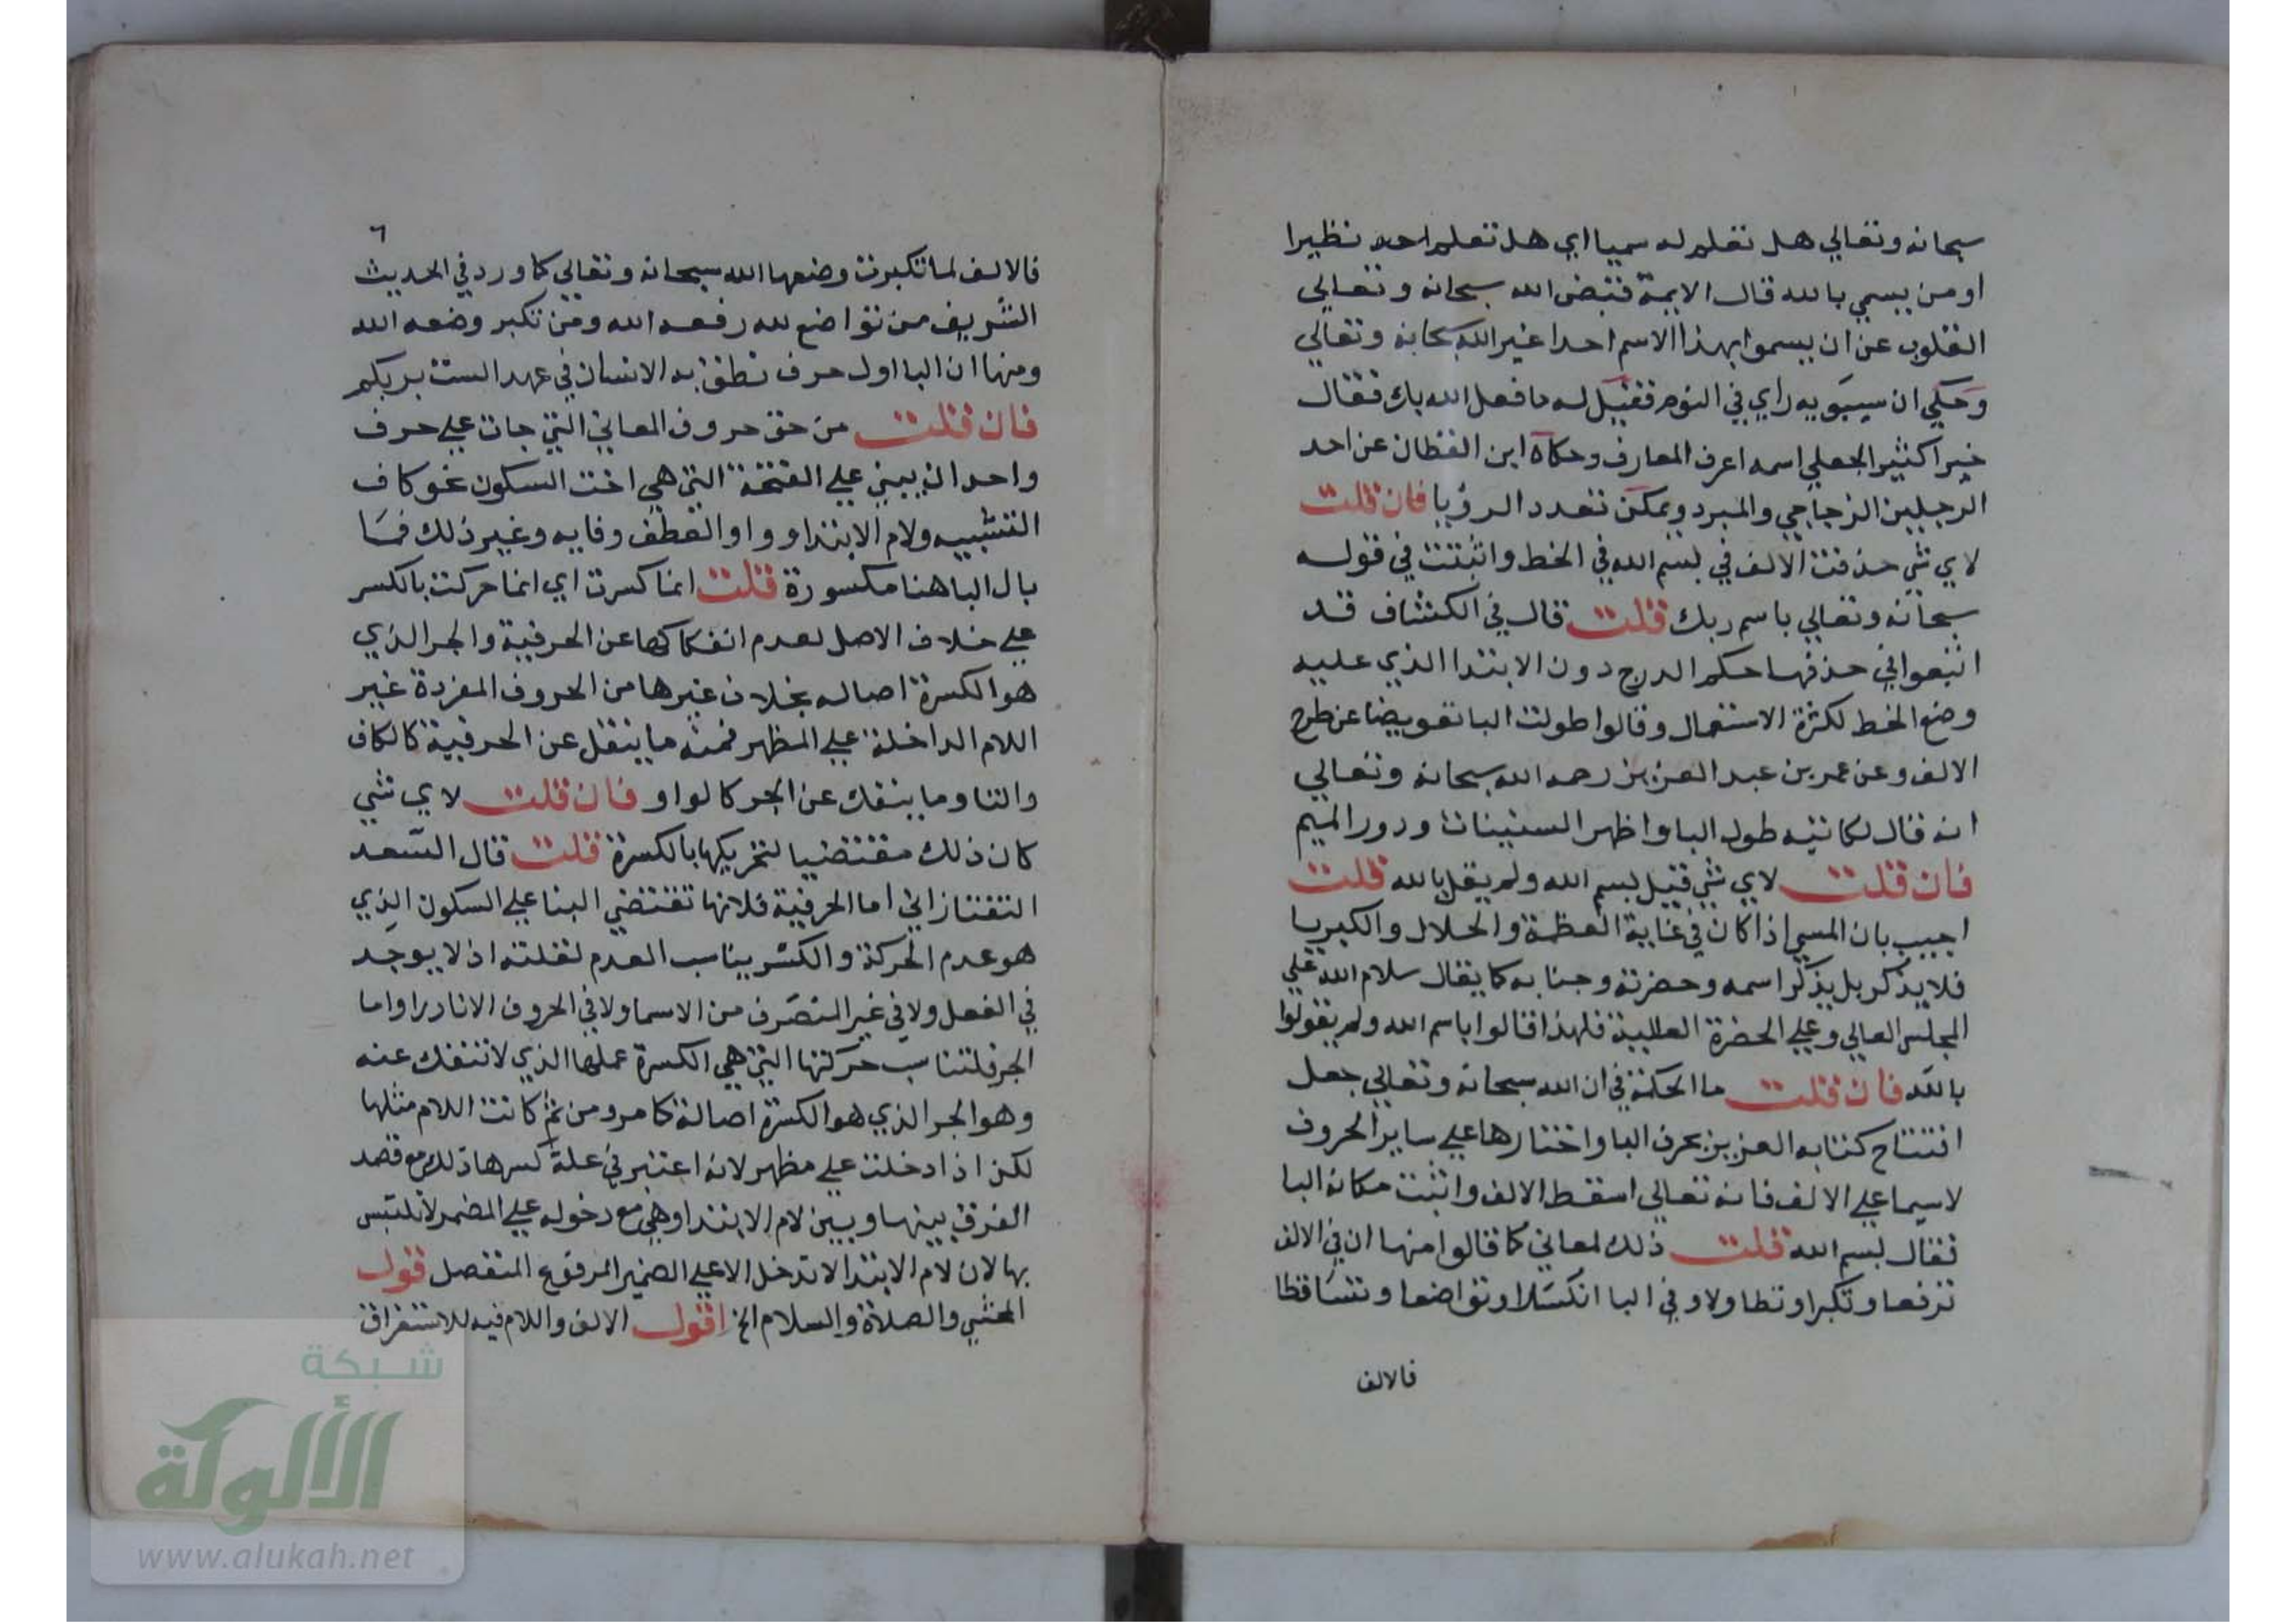 سبحانه وتعالي هل تعلم له سميا اي هل تعلم احد نظيرا
او من يسمي بالله قال الايمة فقبض الله سبحانه وتعالي
القلوب عن ان يسموا بهذا الاسم احدا غير الله سبحانه وتعالي
وحكي ان سيبويه راي في النوم فقيل له ما فعل الله بك فقال
خيرا كثيرا لجعلي اسمه اعرف المعارف وحكاه ابن القطان عن احد
الرجلين الزجاجي والمبرد ويمكن تعدد الرؤيا فان قلت
لاي شي حذفت الالف في بسم الله في الخط واثبتت في قوله
سبحانه وتعالي باسم ربك قلت قال في الكشاف قد
اتبعوا في حذفها حكم الدرج دون الابتدا الذي عليه
وضع الخط لكثرة الاستعمال وقالوا طولت البا تعويضا عن طرح
الالف وعن عمر بن عبد العزيز رحمه الله سبحانه وتعالي
انه قال لكاتبه طول البا واظهر السنينات ودور الميم
فان قلت لاي شي قيل بسم الله ولم يقل بالله قلت
اجيب بان المسمي اذا كان في غاية العظمة والجلال والكبريا
فلا يذكر بل يذكر اسمه وحضرته وجنابه كما يقال سلام الله علي
المجلس العالي وعلي الحضرة العلية فلهذا قالوا باسم الله ولم يقولوا
بالله فان قلت ما الحكمة في ان الله سبحانه وتعالي جعل
افتتاح كتابه العزيز بحرف البا واختارها علي ساير الحروف
لاسيما علي الالف فانه تعالي اسقط الالف واثبت مكانه البا
فقال بسم الله قلت ذلك لمعاني كما قالوا منها ان في الالف
ترفعا وتكبرا وتطاولا وفي البا انكسارا وتواضعا وتساقطا
فالالف
٦
فالالف لما تكبرت وضعها الله سبحانه وتعالي كما ورد في الحديث
الشريف من تواضع لله رفعه الله ومن تكبر وضعه الله
ومنها ان البا اول حرف نطق به الانسان في عهد الست بربكم
فان قلت من حق حروف المعاني التي جات علي حرف
واحد ان يبني علي الفتحة التي هي اخت السكون نحو كاف
التشبيه ولام الابتدا وواو العطف وفايه وغير ذلك فما
بال البا هنا مكسورة قلت انما كسرت اي انما حركت بالكسر
علي خلاف الاصل لعدم انفكاكها عن الحرفية والجر الذي
هو الكسرة اصاله بخلاف غيرها من الحروف المفردة غير
اللام الداخلة علي المظهر فمنه ما ينتقل عن الحرفية كالكاف
والتا وما ينفك عن الجر كالواو فان قلت لاي شي
كان ذلك مقتضيا لتحريكها بالكسرة قلت قال السعد
التفتازاني اما الحرفية فلانها تقتضي البنا علي السكون الذي
هو عدم الحركة والكسر يناسب العدم لقلته اذ لا يوجد
في الفعل ولا في غير المنصرف من الاسما ولا في الحروف الا نادرا واما
الجر فلتناسب حركتها التي هي الكسرة عملها الذي لا تنفك عنه
وهو الجر الذي هو الكسرة اصالة كما مر ومن ثم كانت اللام مثلها
لكن اذا دخلت علي مظهر لانه اعتبر في علة كسرها ذلك مع قصد
الفرق بينها وبين لام الابتدا وهي مع دخوله علي المضمر لا تلتبس
بها لان لام الابتدا لا تدخل الا علي الضمير المرفوع المنفصل قول
المحشي والصلاة والسلام الخ اقول الالف واللام فيه للاستغراق
شبكة
الألوكة
www.alukah.net